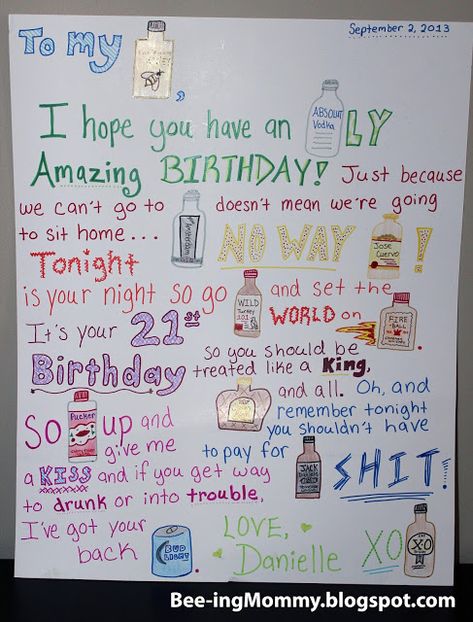 September 2, 2013
To my
,
I hope you have an ABSOLUT Vodka LY
Amazing BIRTHDAY! Just because
we can't go to Amsterdam doesn't mean we're going
to sit home... NO WAY Jose Cuervo !
Tonight
is your night so go WILD Turkey 101 and set the
WORLD on FIRE BALL.
It's your 21st
Birthday
So you should be
treated like a King,
and all. Oh, and
remember tonight
you shouldn't have
to pay for JACK DANIEL'S SHIT!
So Pucker up and
give me
a KISS and if you get way
to drunk or into trouble,
I've got your
back BUD LIGHT.
LOVE,
Danielle XO XO
Bee-ingMommy.blogspot.com